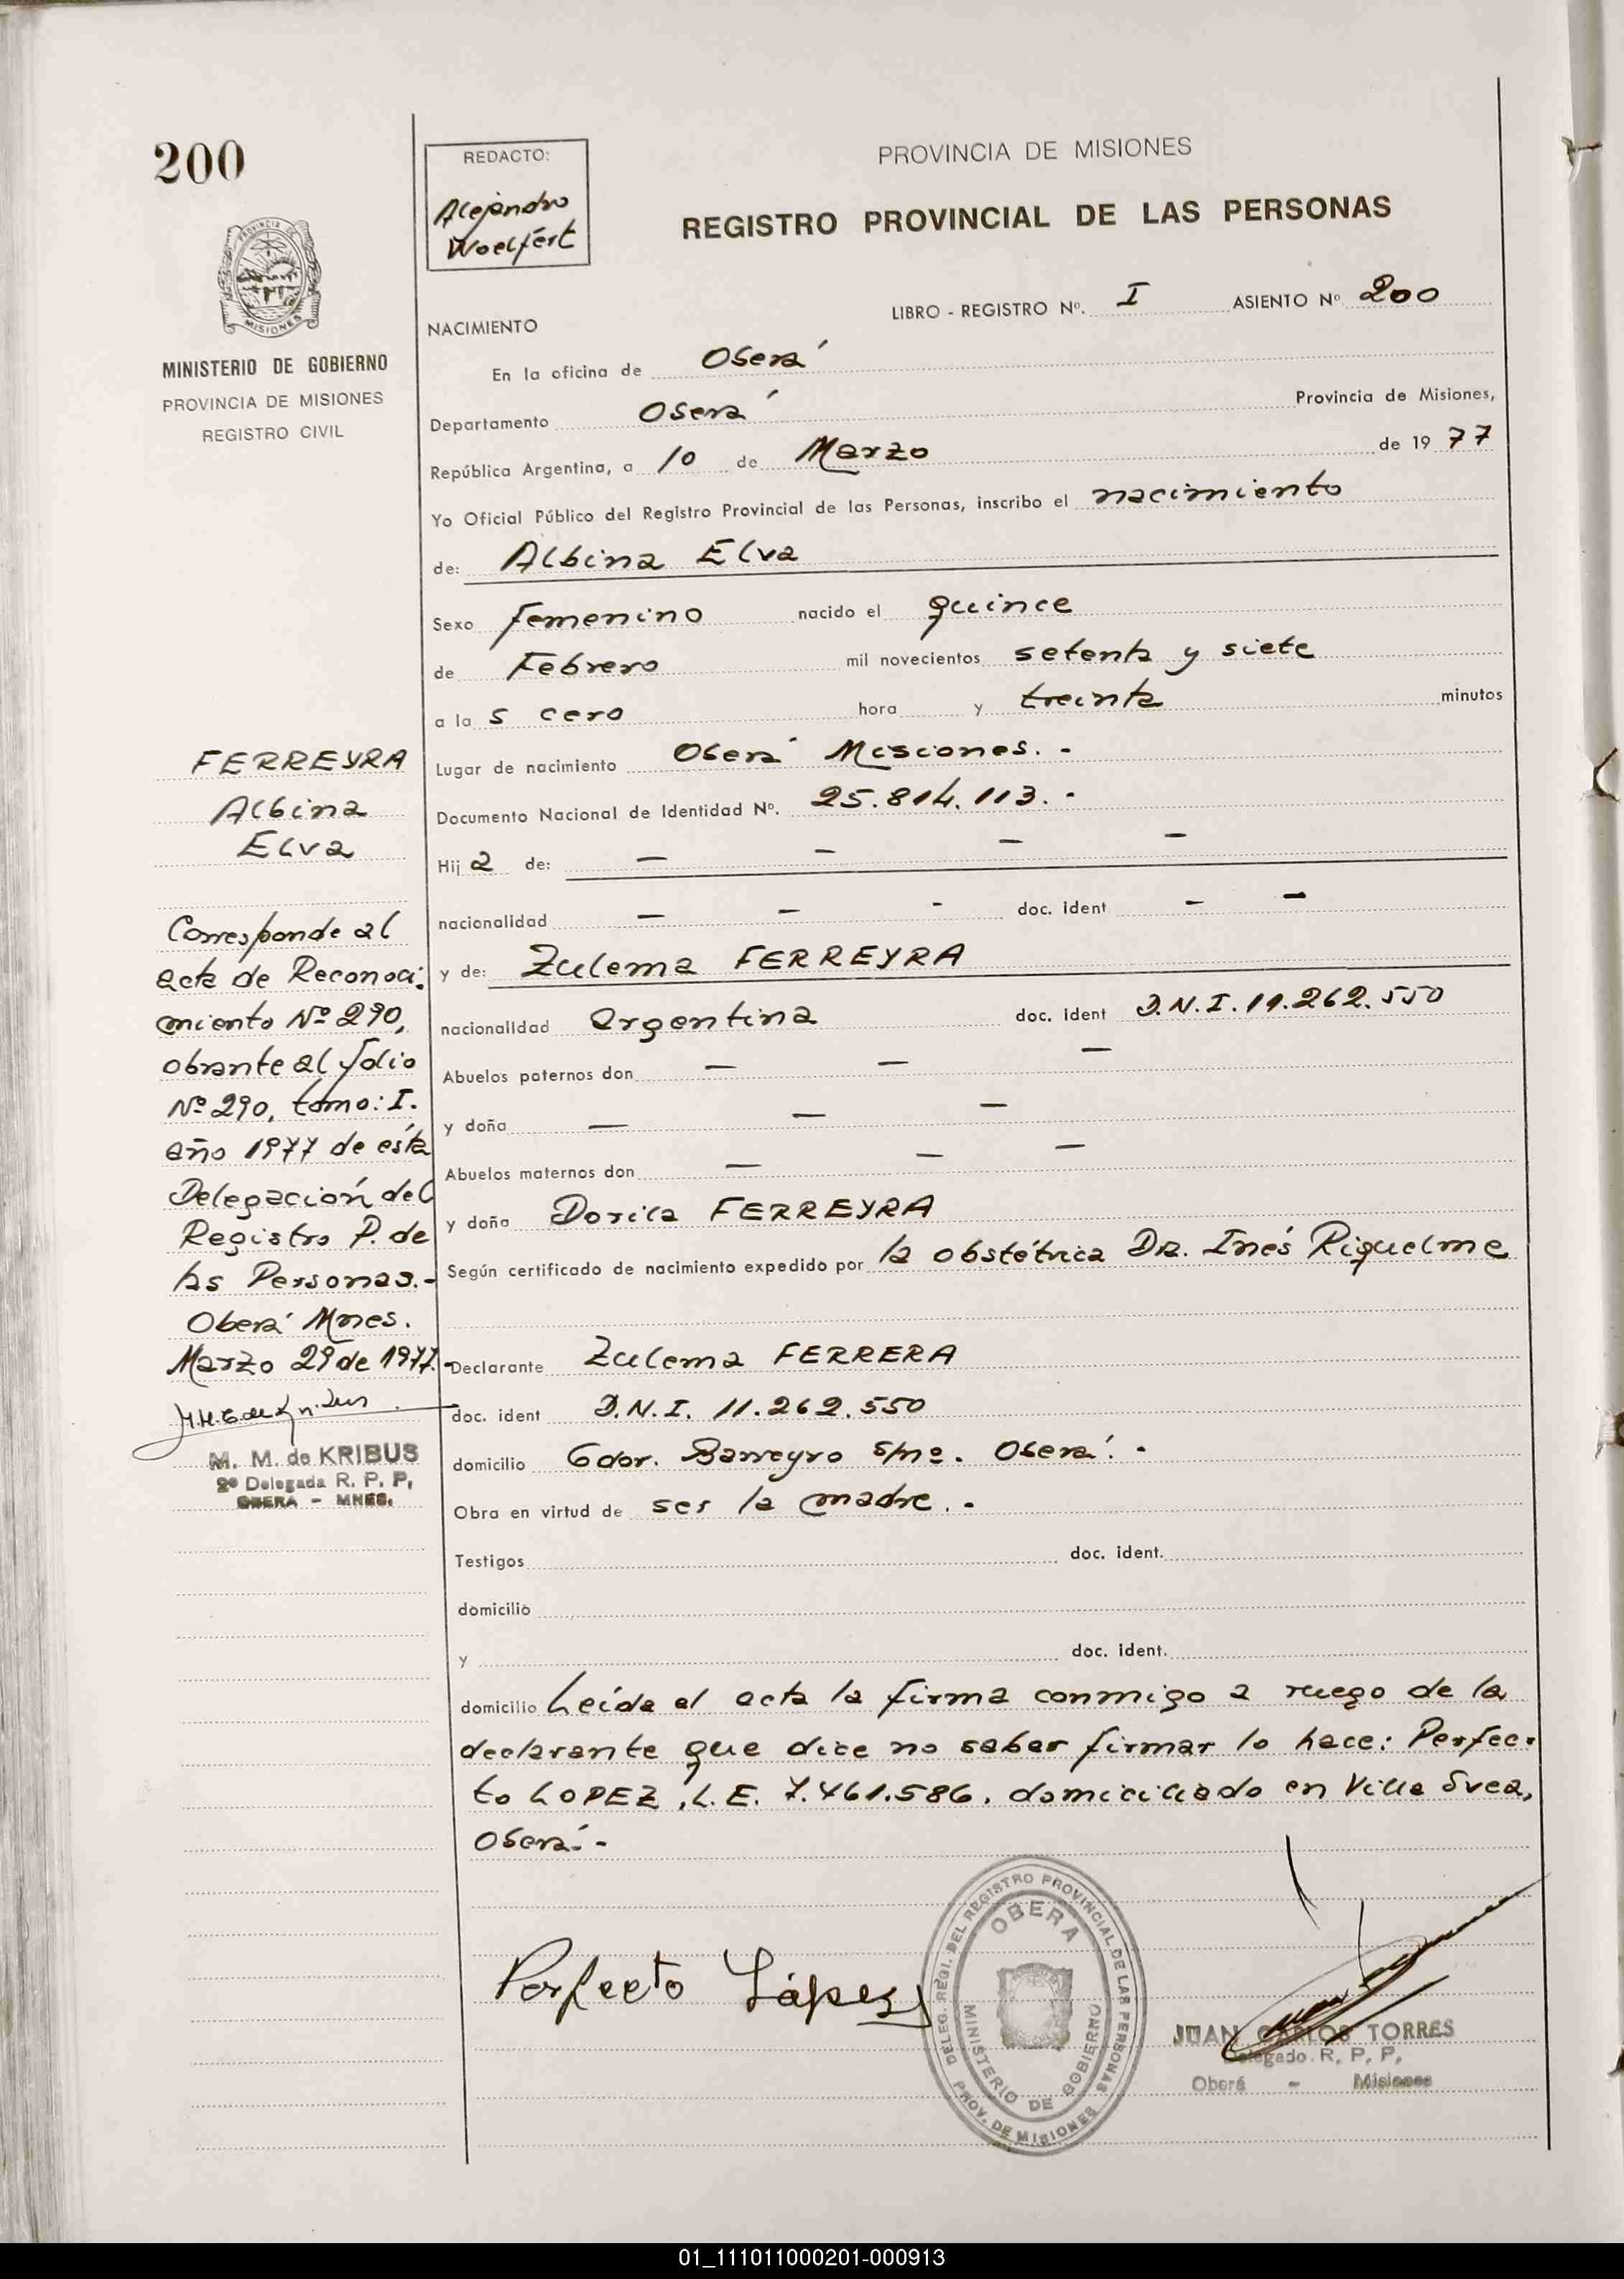 200
PROVINCIA DE MISIONES
MINISTERIO DE GOBIERNO
PROVINCIA DE MISIONES
REGISTRO CIVIL
FERREYRA
Albina
Elva
Corresponde al
acta de Reconoci-
miento Nº 290,
obrante al folio
Nº 290, tomo: I.
año 1977 de esta
Delegación del
Registro P. de
las Personas.-
Oberá Mnes.
Marzo 29 de 1977.-
M. M. de KRIBUS
2º Delegada R. P. P,
OBERA - MNES.
REDACTO:
Alejandro
Woelfert
PROVINCIA DE MISIONES
REGISTRO PROVINCIAL DE LAS PERSONAS
LIBRO - REGISTRO Nº. I ASIENTO Nº 200
NACIMIENTO
En la oficina de Oberá
Departamento Oberá Provincia de Misiones,
República Argentina, a 10 de Marzo de 1977
Yo Oficial Público del Registro Provincial de las Personas, inscribo el nacimiento
de: Albina Elva
Sexo femenino nacido el quince
de Febrero mil novecientos setenta y siete
a la s cero hora y treinta minutos
Lugar de nacimiento Oberá Misiones. -
Documento Nacional de Identidad Nº. 25.814.113. -
Hija de: — — — —
nacionalidad — — - doc. ident - -
y de: Zulema FERREYRA
nacionalidad argentina doc. ident D.N.I. 11.262.550
Abuelos paternos don — — —
y doña — — —
Abuelos maternos don — — —
y doña Dorila FERREYRA
Según certificado de nacimiento expedido por la obstétrica Da. Inés Riquelme
Declarante Zulema FERRERA
doc. ident D.N.I. 11.262.550
domicilio Gdor. Barreyro s/nº. Oberá. -
Obra en virtud de ser la madre. -
Testigos doc. ident.
domicilio
y doc. ident.
domicilio Leída el acta la firma conmigo a ruego de la
declarante que dice no saber firmar lo hace: Perfec-
to LOPEZ, L.E. 7.461.586. domiciliado en Villa Svea,
Oberá.-
Perfecto López
DELEG. REGI. DEL REGISTRO PROVINCIAL DE LAS PERSONAS
OBERA
MINISTERIO DE GOBIERNO
PROV. DE MISIONES
JUAN CARLOS TORRES
Delegado R. P. P.
Oberá - Misiones
01_111011000201-000913